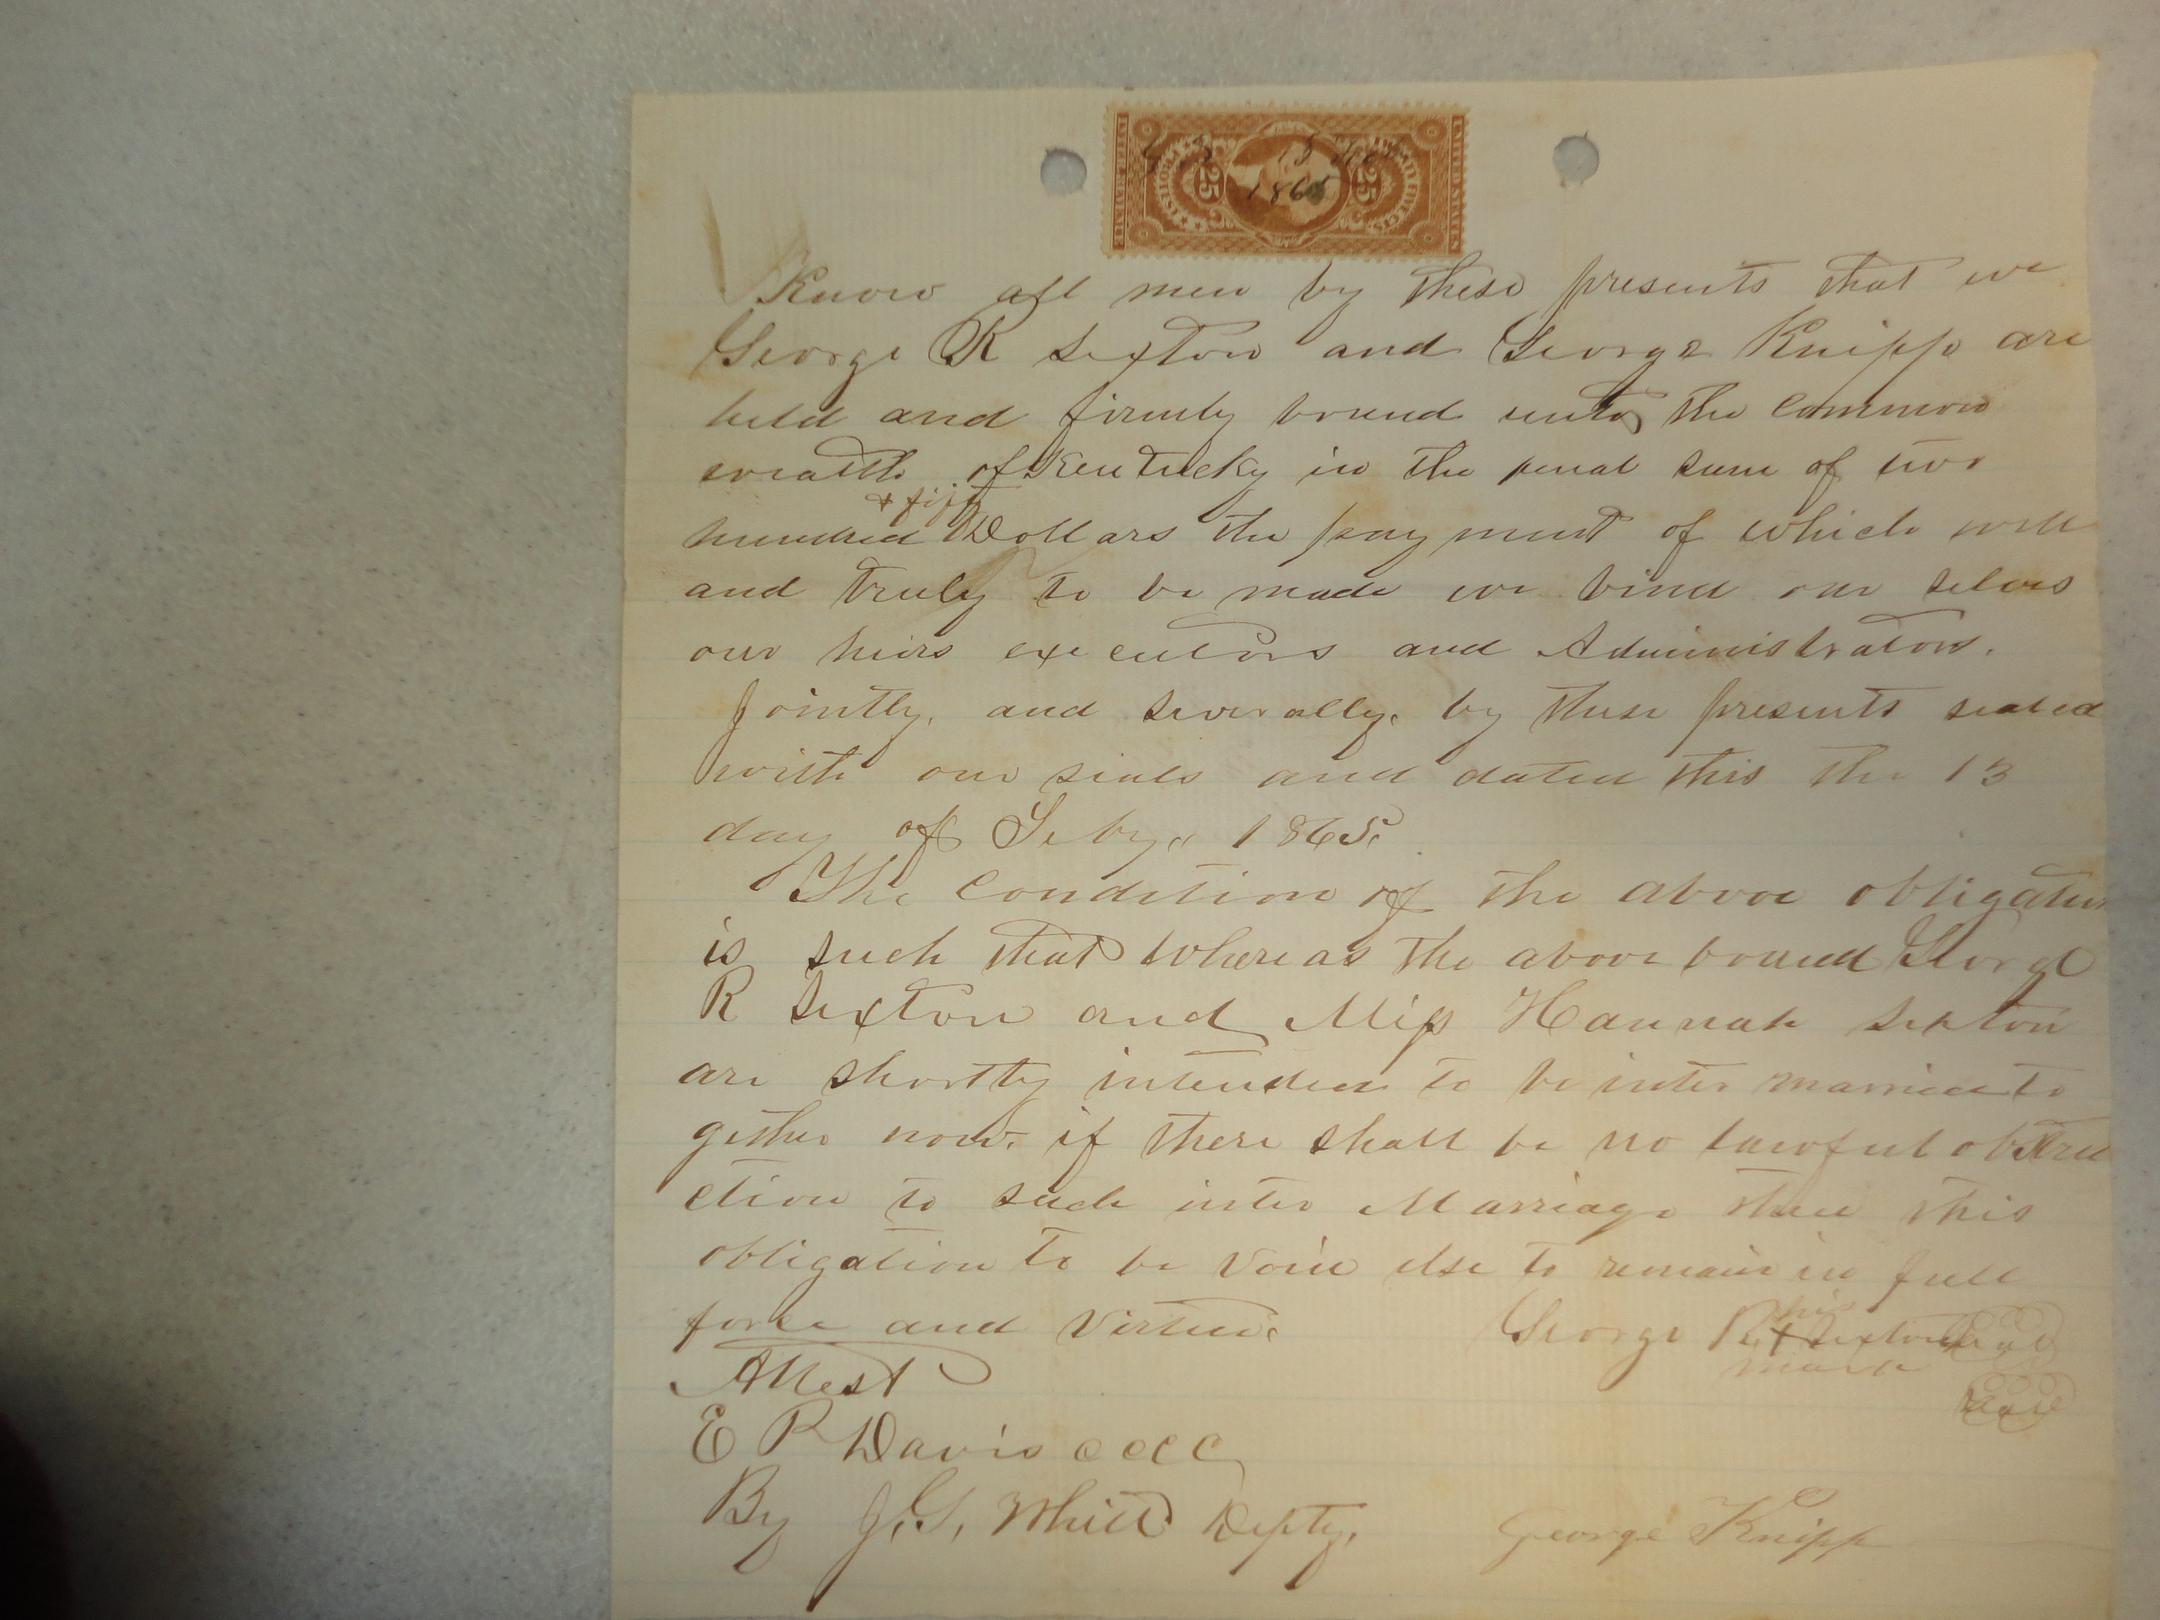 UNITED STATES
INTER. REVENUE
25
25
13 Feb
1865
Know all men by these presents that we
George R Sexton and George Knipp are
held and firmly bound unto the common
wealth of Kentucky in the penal sum of two
& fifty
hundred Dollars the payment of which well
and truly to be made we bind our selves
our heirs executors and Administrators.
Jointly, and severally, by these presents sealed
with our seals and dated this the 13
day of Feby, 1865.
The condition of the above obligation
is such that whereas the above bound George
R Sexton and Miss Hannah Sexton
are shortly intended to be inter married to
gether now, if there shall be no lawful obstru
ction to such inter Marriage then this
obligation to be void else to remain in full
force and Virtue.
his
George R + Sexton Seal
mark
Seal
Attest
E P Davis CCCC
By J, S, Whitt Depty,
George Knipp